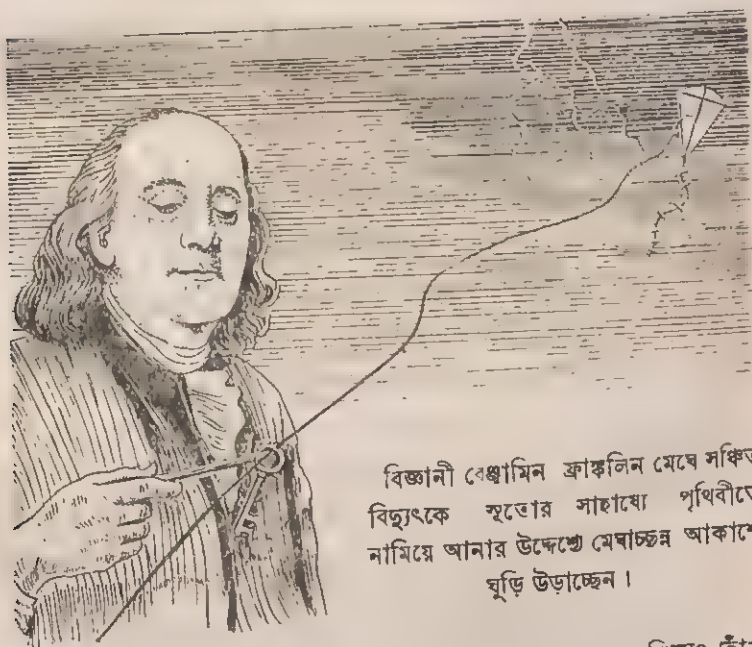 বিজ্ঞানী বেঞ্জামিন ফ্রাঙ্কলিন মেঘে সঞ্চিত
বিদ্যুৎকে সূতোর সাহায্যে পৃথিবীতে
নামিয়ে আনার উদ্দেশ্যে মেঘাচ্ছন্ন আকাশে
ঘুড়ি উড়াচ্ছেন।